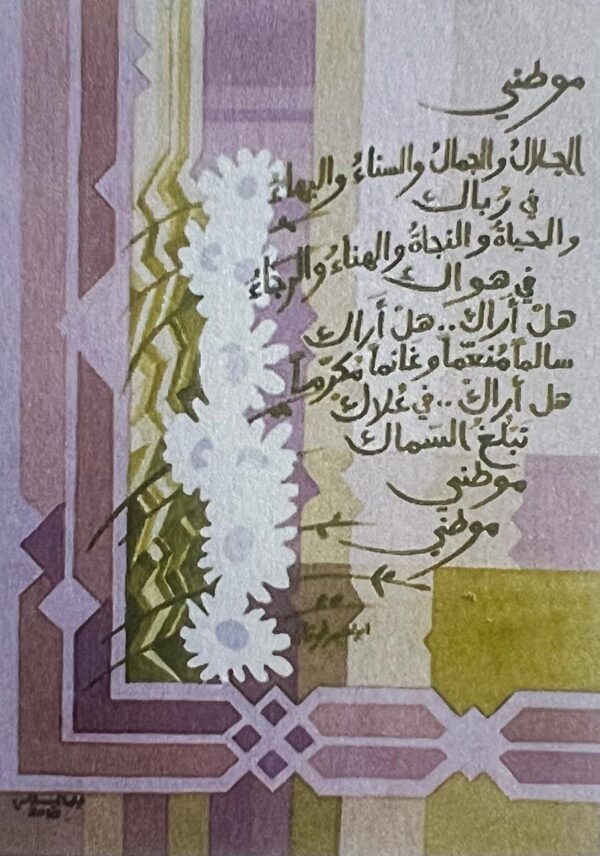 موطني
الجلالُ والجمالُ والسناءُ والبهاءُ
في رُباك
والحياةُ والنجاةُ والهناءُ والرجاءُ
في هواك
هلْ أَراكَ.. هلْ أَراك
سالماً مُنعّماً وغانماً مُكرّماً
هل أراكَ.. في عُلاك
تبلُغُ السّماك
موطني
موطني
ابراهيم طوقان
2010